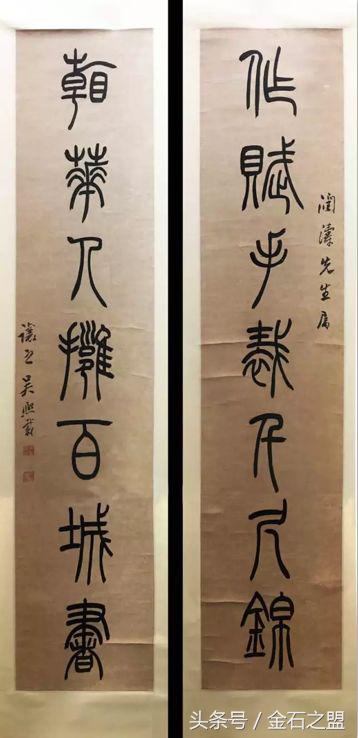 作賦手裁千尺錦
濤先生屬
朝華人擁百城書
讓之吳熙載
头条号 / 金石之盟